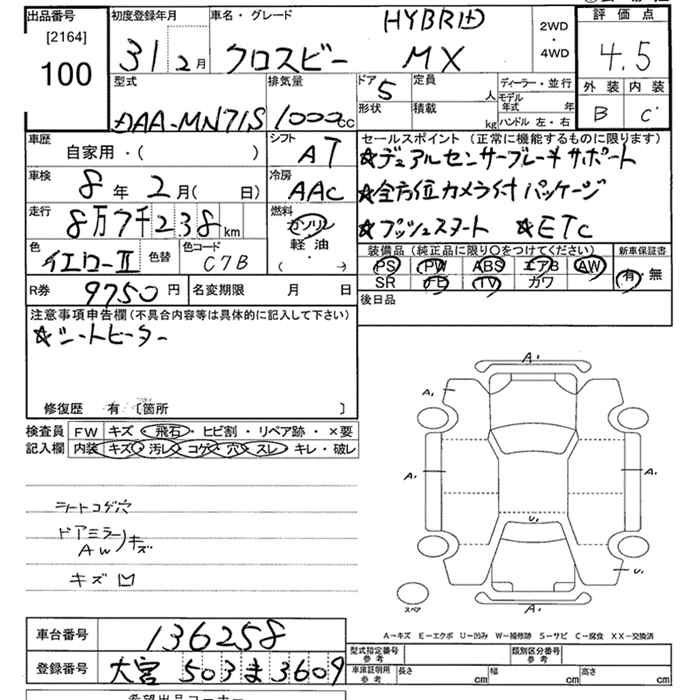 出品番号
[2164]
100
初度登録年月
31 2月
車名・グレード
HYBRID
クロスビー MX
2WD
・
4WD
評価点
4.5
外装 内装
B C
型式
DAA-MN71S
排気量
1000cc
ドア 5
形状
定員 人
積載 kg
ディーラー・並行
モデル年式 年
ハンドル 左・右
車歴
自家用・( )
シフト
AT
セールスポイント(正常に機能するものに限ります)
☆デュアルセンサーブレーキサポート
☆全方位カメラ付パッケージ
☆プッシュスタート ☆ETC
車検
8年 2月( 日)
冷房
AAC
走行
8万7千238km
燃料
ガソリン
軽油
( )
色
イエローII
色替
色コード
C7B
装備品(純正品に限り○をつけてください)
PS PW ABS エアB AW
SR ナビ TV カワ
新車保証書
有・無
R券 9750円
名変期限 月 日
後日品
注意事項申告欄(不具合内容等は具体的に記入して下さい)
☆シートヒーター
修復歴 有 〔箇所 〕
検査員
記入欄
FW キズ・飛石・ヒビ割・リペア跡・×要
内装 キズ・汚レ・コゲ・穴・スレ・キレ・破レ
シートコゲ穴
ドアミラー
AW
キズ
キズ
A1
A1
A1
A1
A1
U1
U1
A1
スペア
A-キズ E-エクボ U-凹み W-補修跡 S-サビ C-腐食 XX-交換済
車台番号 136258
登録番号 大宮 503 ま 3609
型式指定番号
参考
類別区分番号
参考
車庫証明用
参考
長さ cm
幅 cm
高さ cm
希望出品コーナー